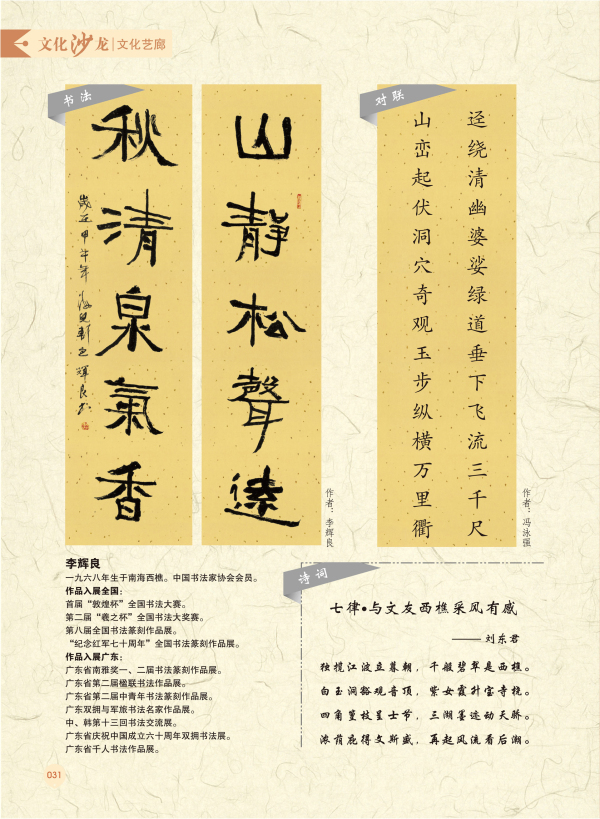 文化沙龙|文化艺廊
书法
山静松聲遠
秋清泉氣香
歲在甲午年
作者：李辉良
对联
迳绕清幽婆娑绿道垂下飞流三千尺
山峦起伏洞穴奇观玉步纵横万里衢
作者：冯泳强
李辉良
一九六八年生于南海西樵。中国书法家协会会员。
作品入展全国：
首届“敦煌杯”全国书法大赛。
第二届“羲之杯”全国书法大奖赛。
第八届全国书法篆刻作品展。
“纪念红军七十周年”全国书法篆刻作品展。
作品入展广东：
广东省南雅奖一、二届书法篆刻作品展。
广东省第二届楹联书法作品展。
广东省第二届中青年书法篆刻作品展。
广东双拥与军旅书法名家作品展。
中、韩第十三回书法交流展。
广东省庆祝中国成立六十周年双拥书法展。
广东省千人书法作品展。
诗词
七律•与文友西樵采风有感
——刘东君
独揽江波立暮朝，千般碧翠是西樵。
白玉洞豁观音顶，紫女霞升宝寺桡。
四角篁枝呈士节，三湖墨迹动天骄。
浓荫庇得文斯盛，再起风流看后潮。
031